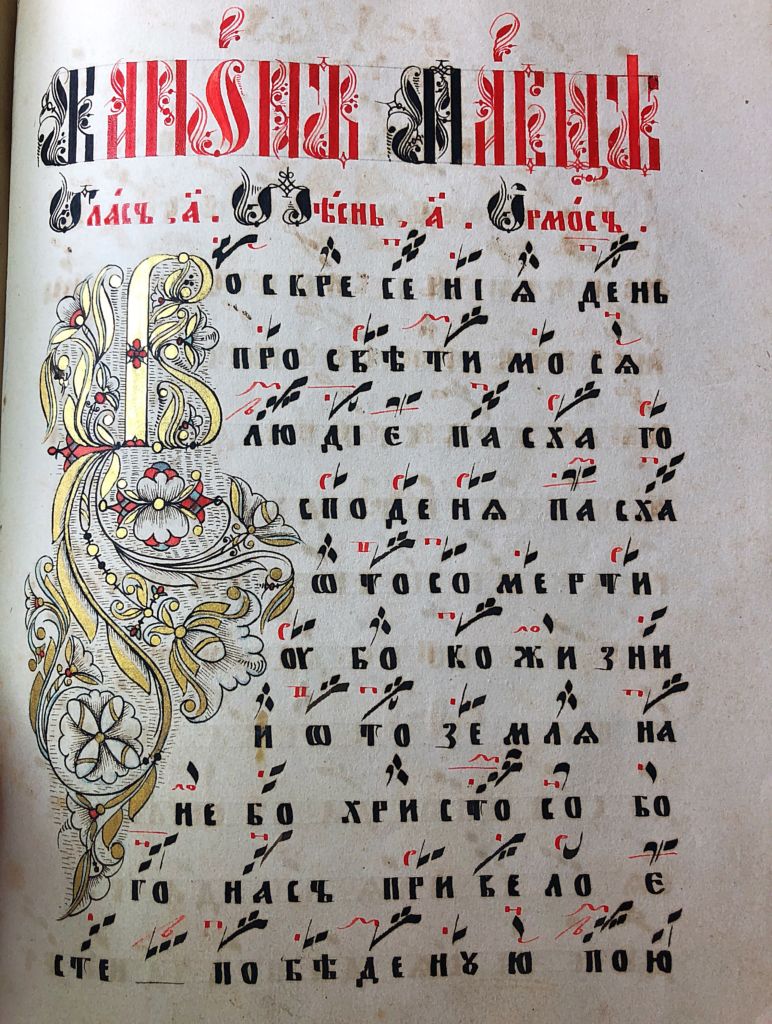 Канонъ Пасцѣ
Гласъ . а҃ . Пѣснь , а҃ . Ірмосъ .
Воскресеніѧ день
просвѣтимосѧ
людіє пасха го
сподєнѧ пасха
ѿтосомерти
оубо кожизни
и ѿто землѧ на
небо христосо бо
го насъ привело є
сте побѣденꙋю пою